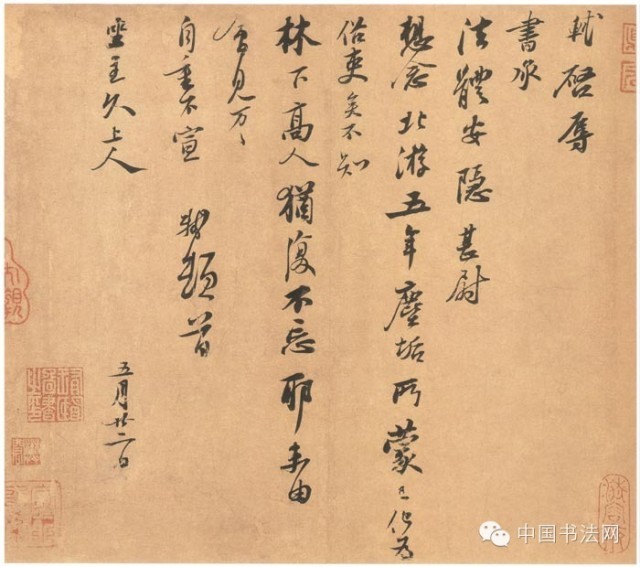 軾啓辱
書承
法體安隱甚尉
想念北游五年塵垢所蒙已化為
俗吏矣不知
林下高人猶復不忘耶未由
會見万〻
自重不宣 軾頓首
坐主久上人 五月廿二日
中国书法网